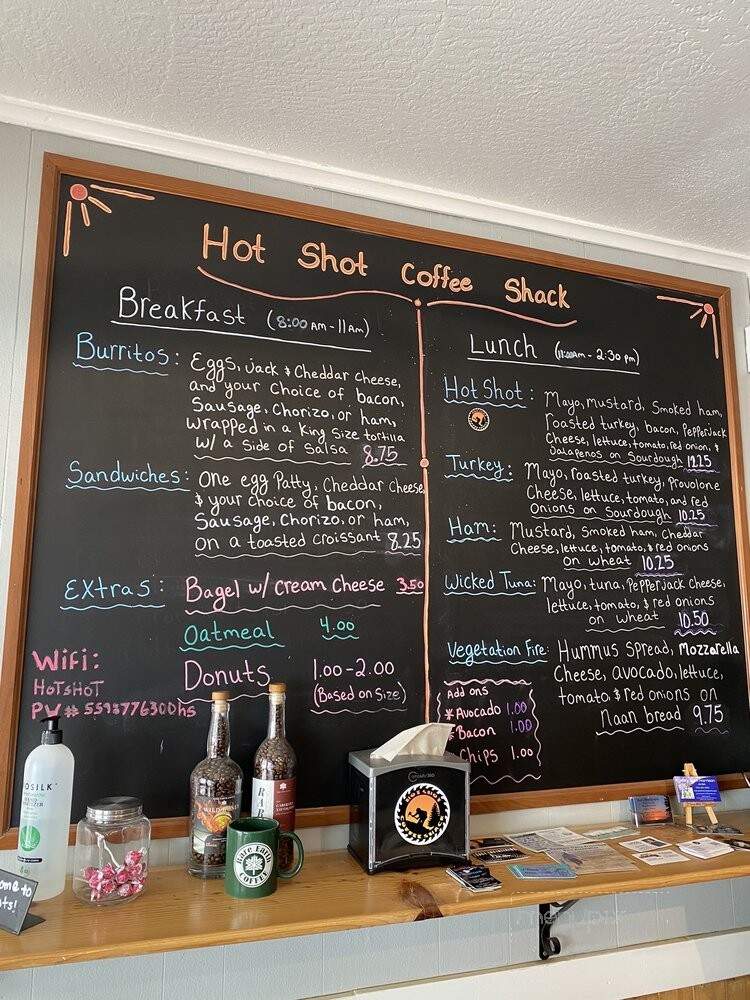 Hot Shot Coffee Shack
Breakfast (8:00 AM - 11 AM)
Burritos:
Eggs, Jack & Cheddar Cheese,
and your choice of bacon,
Sausage, Chorizo, or ham,
wrapped in a King Size tortilla
w/ a Side of Salsa 8.75
Sandwiches:
One egg Patty, Cheddar Cheese
& your choice of bacon,
Sausage, Chorizo, or ham,
on a toasted croissant 8.25
Extras:
Bagel w/ Cream Cheese 3.50
Oatmeal 4.00
Donuts 1.00 - 2.00
(Based on Size)
Wifi:
HOTSHOT
PW# 5598776300hs
Lunch (11:00AM - 2:30 pm)
Hot Shot:
Mayo, mustard, Smoked ham,
roasted turkey, bacon, Pepperjack
Cheese, lettuce, tomato, red onion, &
Jalapenos on Sourdough 12.25
Turkey:
Mayo, roasted turkey, provolone
Cheese, lettuce, tomato, and red
Onions on Sourdough 10.25
Ham:
Mustard, Smoked ham, Cheddar
Cheese, lettuce, tomato, & red onions
on wheat 10.25
Wicked Tuna:
Mayo, tuna, Pepperjack cheese,
lettuce, tomato, & red onions
on wheat 10.50
Vegetation Fire:
Hummus Spread, Mozzarella
Cheese, avocado, lettuce,
tomato & red onions on
Naan bread 9.75
Add ons
*Avocado 1.00
*Bacon 1.00
Chips 1.00
OSILK
WILD
RARE
Rare Earth
COFFEE